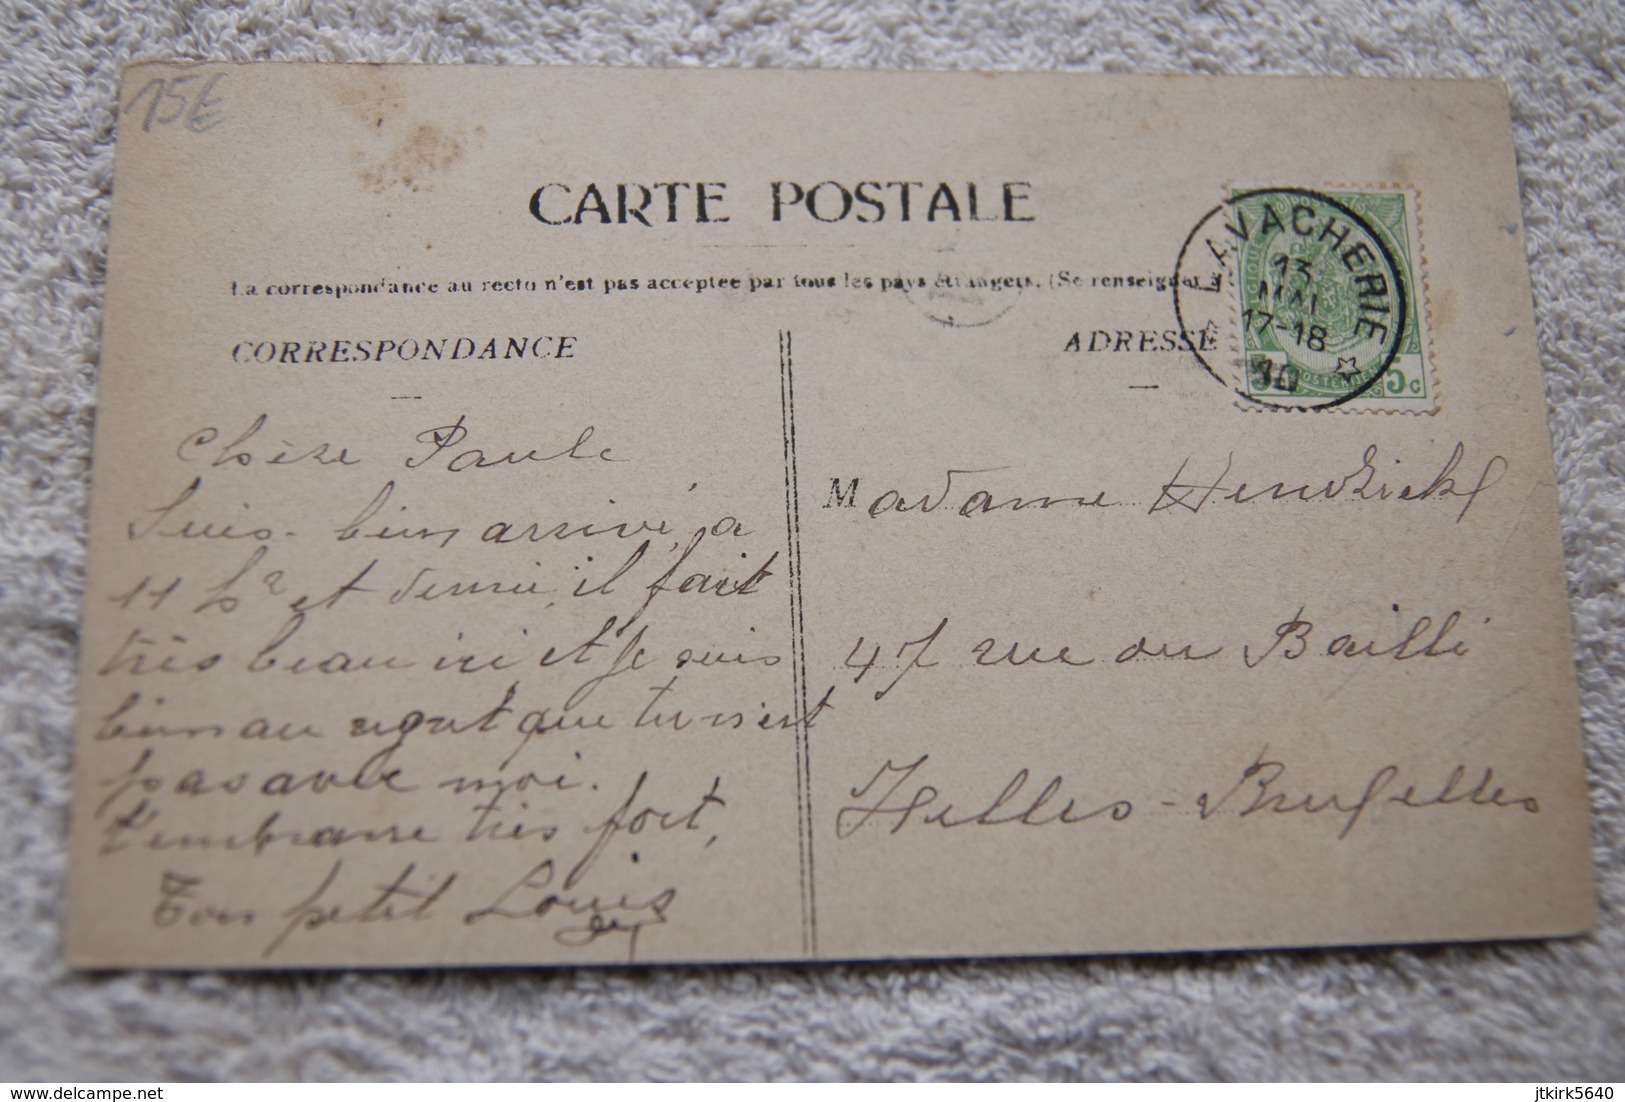 15€
CARTE POSTALE
La correspondance au recto n'est pas acceptee par tous les pays étrangers. (Se renseigner
CORRESPONDANCE
ADRESSE
LAVACHERIE
13
MAI
17-18
10
5c
Chère Paule
Suis bien arrivé, a
11 hr et demie, il fait
très beau ici et je suis
bien au regret que tu n'est
pas avec moi.
t'embrasse très fort,
Ton petit Louis
Madame Hendrickx
47 rue du Bailli
XLelles-Bruxelles
delcampe.net
jtkirk5640